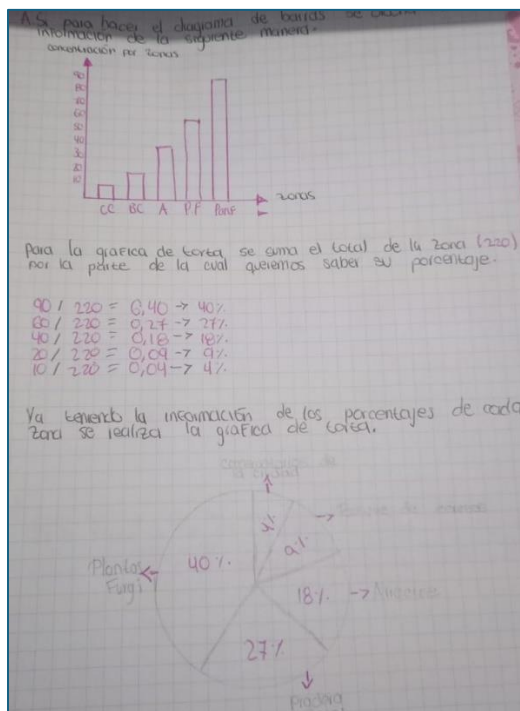 A. Si, para hacer el diagrama de barras se
información de la siguiente manera.
concentración por zonas
90
80
70
60
50
40
30
20
10
CC BC A P.F
zonas
Para la grafica de torta se suma el total de la zona (220)
por la parte de la cual queremos saber su porcentaje.
90 / 220 = 0,40 → 40%
60 / 220 = 0,27 → 27%
40 / 220 = 0,18 → 18%
20 / 220 = 0,09 → 9%
10 / 220 = 0,04 → 4%
Ya teniendo la información de los porcentajes de cada
zona se realiza la grafica de torta.
la ciudad
4%
9%
40%
Plantas
Fungi
18%
27%
Pradera